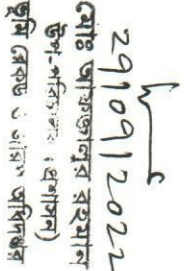 29/09/2022
মোঃ রহমান
উপ-পরিচালক (প্রশাসন)
ভূমি রেকর্ড ও জরিপ অধিদপ্তর